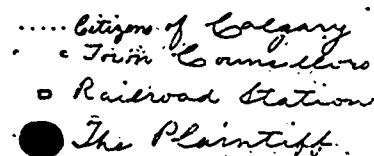 ..... Citizens of Calgary
Town Counsellors
Railroad Station
The Plaintiff.